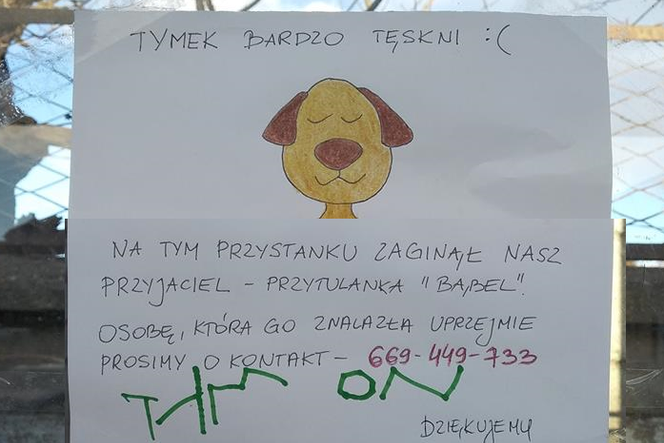 TYMEK BARDZO TĘSKNI :(
NA TYM PRZYSTANKU ZAGINĄŁ NASZ
PRZYJACIEL - PRZYTULANKA "BĄBEL".
OSOBĘ, KTÓRA GO ZNALAZŁA UPRZEJMIE
PROSIMY O KONTAKT - 669-449-733
DZIĘKUJEMY